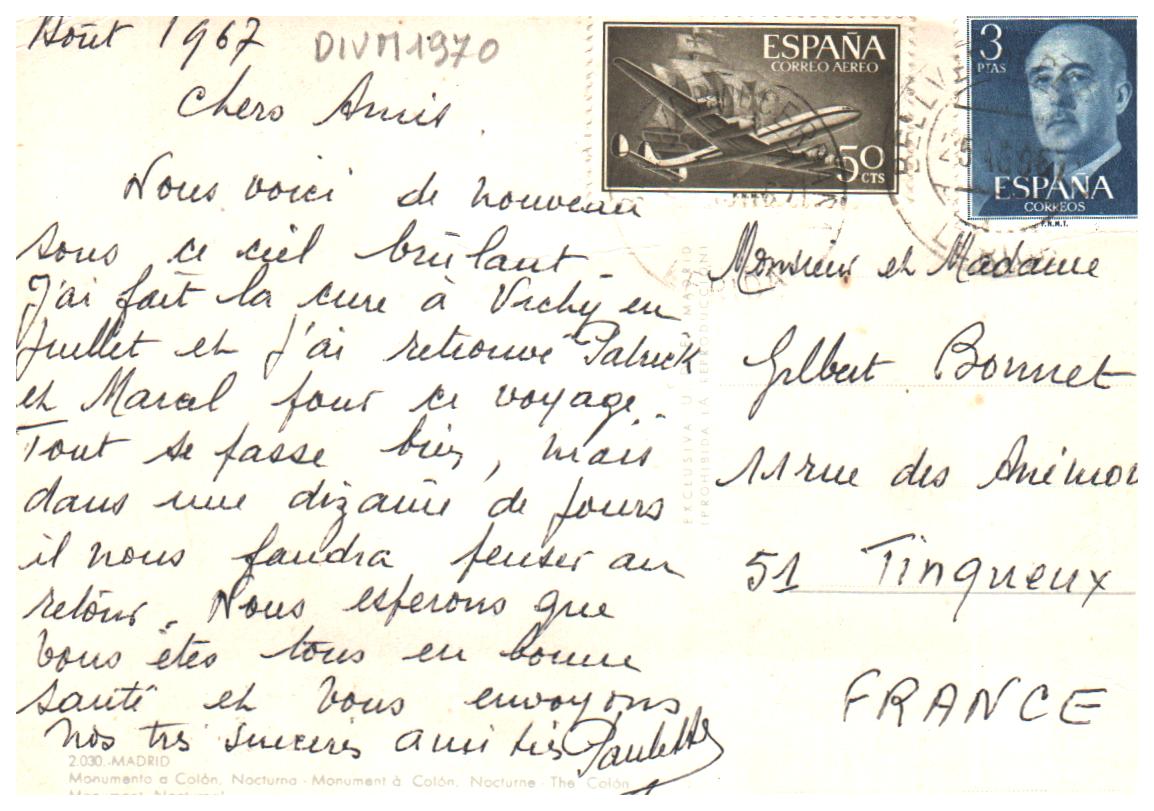 Août 1967
DIVM1970
Chers Amis.
Nous voici de nouveau
sous ce ciel brûlant -
J'ai fait la cure à Vichy en
Juillet et j'ai retrouvé Patrick
et Marcel pour ce voyage.
Tout se passe bien, mais
dans une dizaine de jours
il nous faudra penser au
retour. Nous espérons que
vous êtes tous en bonne
santé et vous envoyons
nos très sincères amitiés Paulette
2.030.-MADRID
Monumento a Colón, Nocturna - Monument à Colón, Nocturne - The Colón
ESPAÑA
CORREO AEREO
50
CTS
3
PTAS
ESPAÑA
CORREOS
F.N.M.T.
MADRID
EXCLUSIVA
(PROHIBIDA LA REPRODUCCION)
Monsieur et Madame
Gilbert Bonnet
11 rue des Anémon
51 Tinqueux
FRANCE